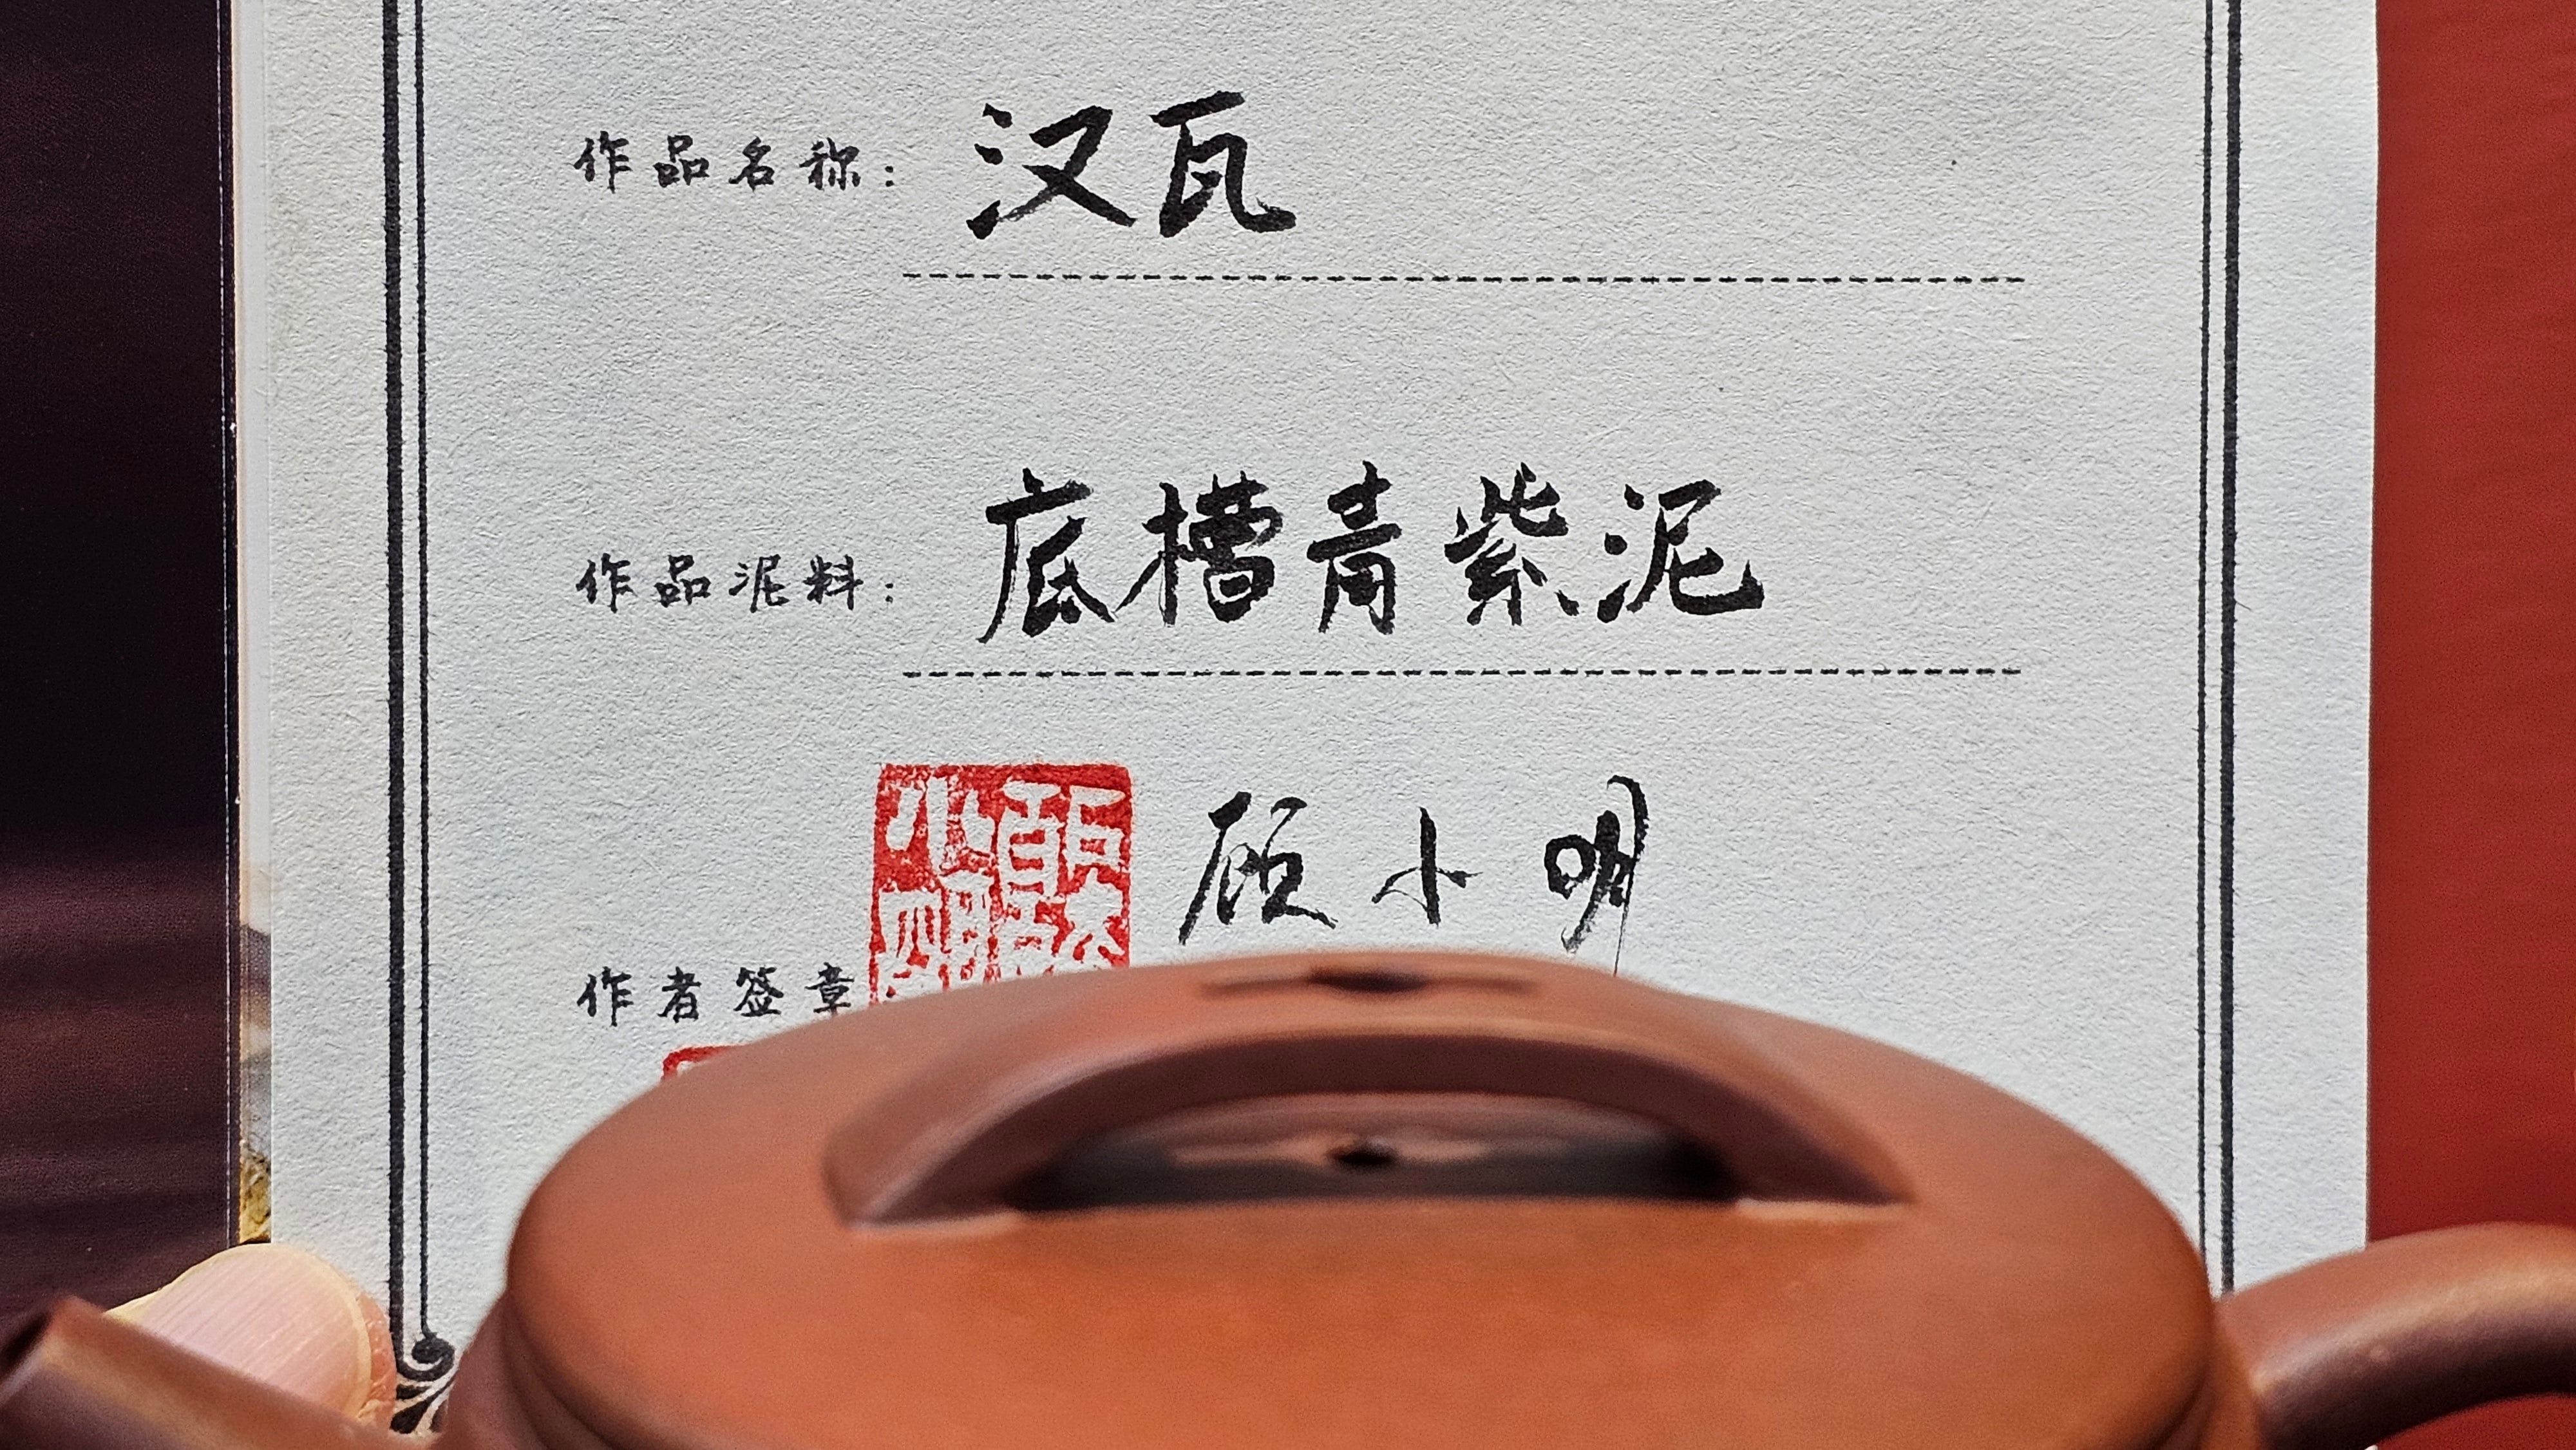 作品名称：汉瓦
作品泥料：底槽青紫泥
顾小明
作者签章